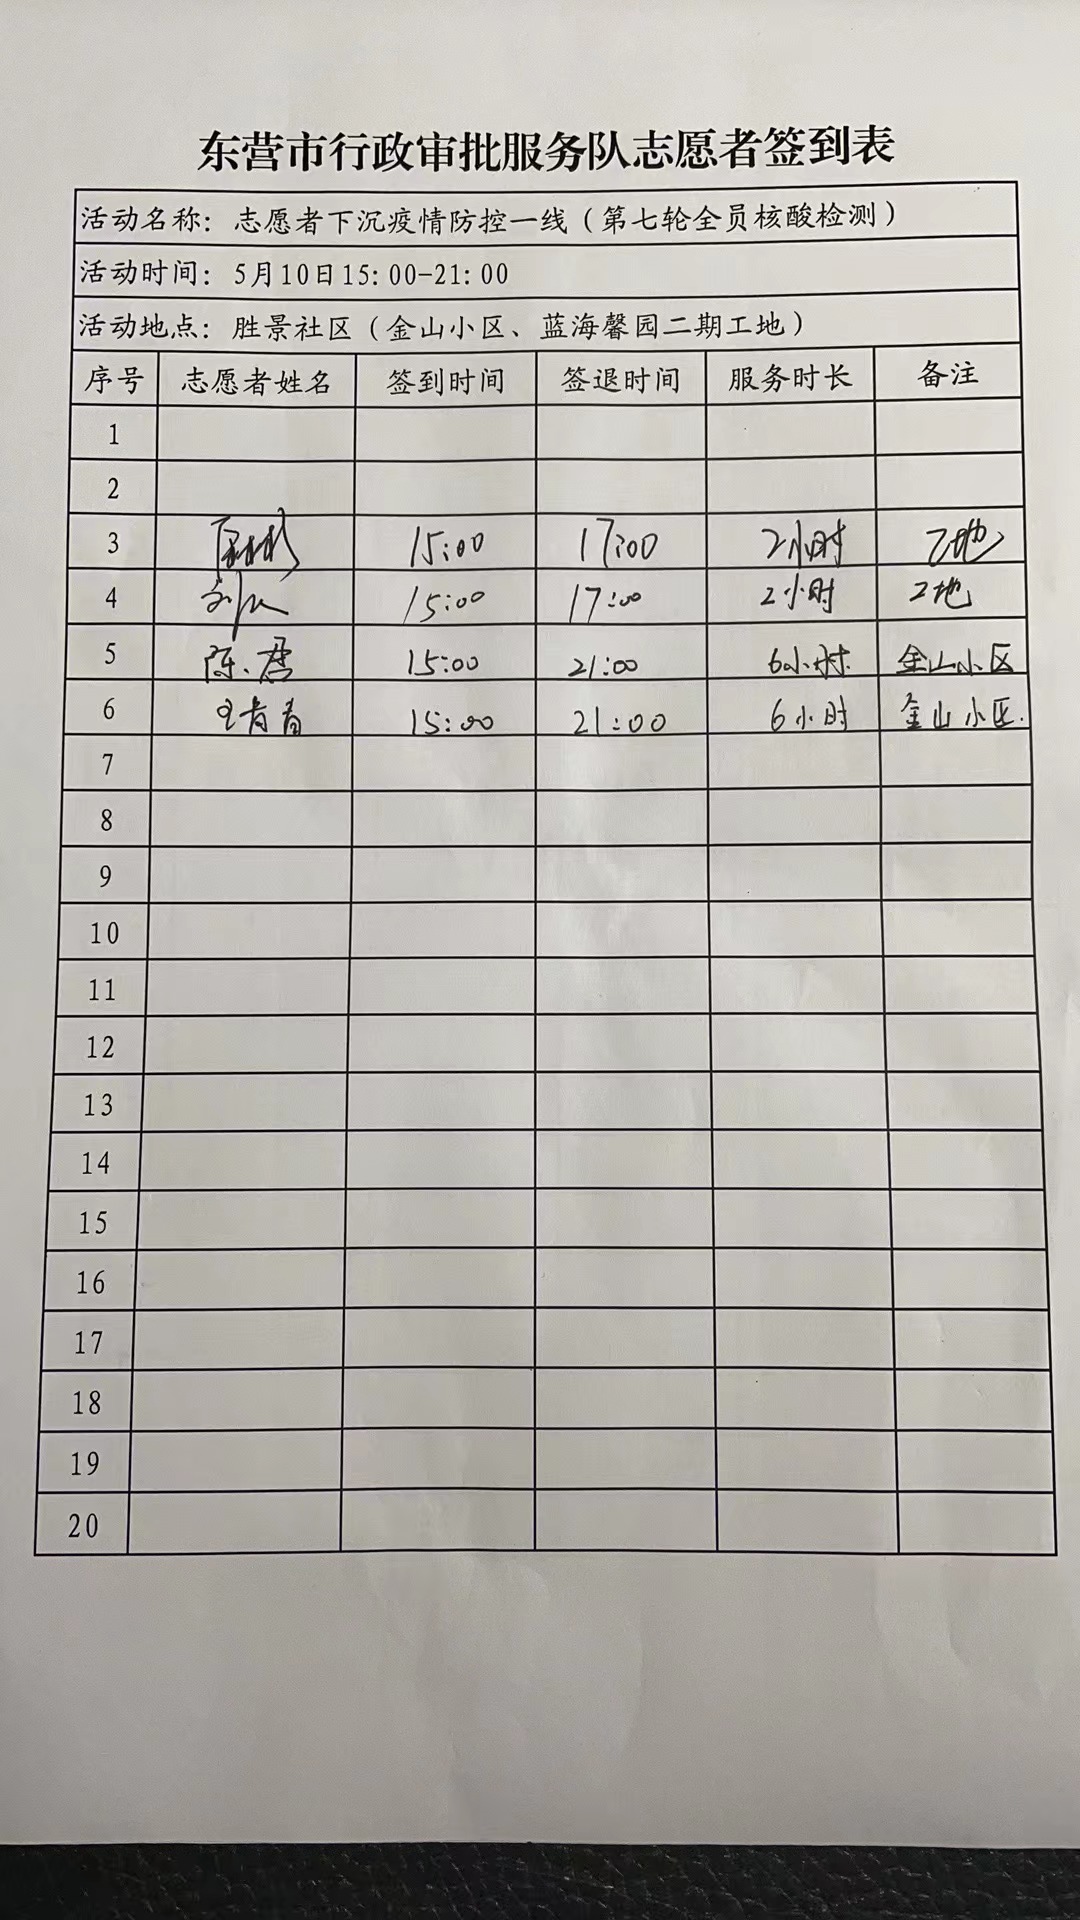 东营市行政审批服务队志愿者签到表
活动名称：志愿者下沉疫情防控一线（第七轮全员核酸检测）
活动时间：5月10日15:00-21:00
活动地点：胜景社区（金山小区、蓝海馨园二期工地）
序号 志愿者姓名 签到时间 签退时间 服务时长 备注
1
2
3 15:00 17:00 2小时 工地
4 15:00 17:00 2小时 工地
5 陈君 15:00 21:00 6小时 金山小区
6 王青青 15:00 21:00 6小时 金山小区
7
8
9
10
11
12
13
14
15
16
17
18
19
20